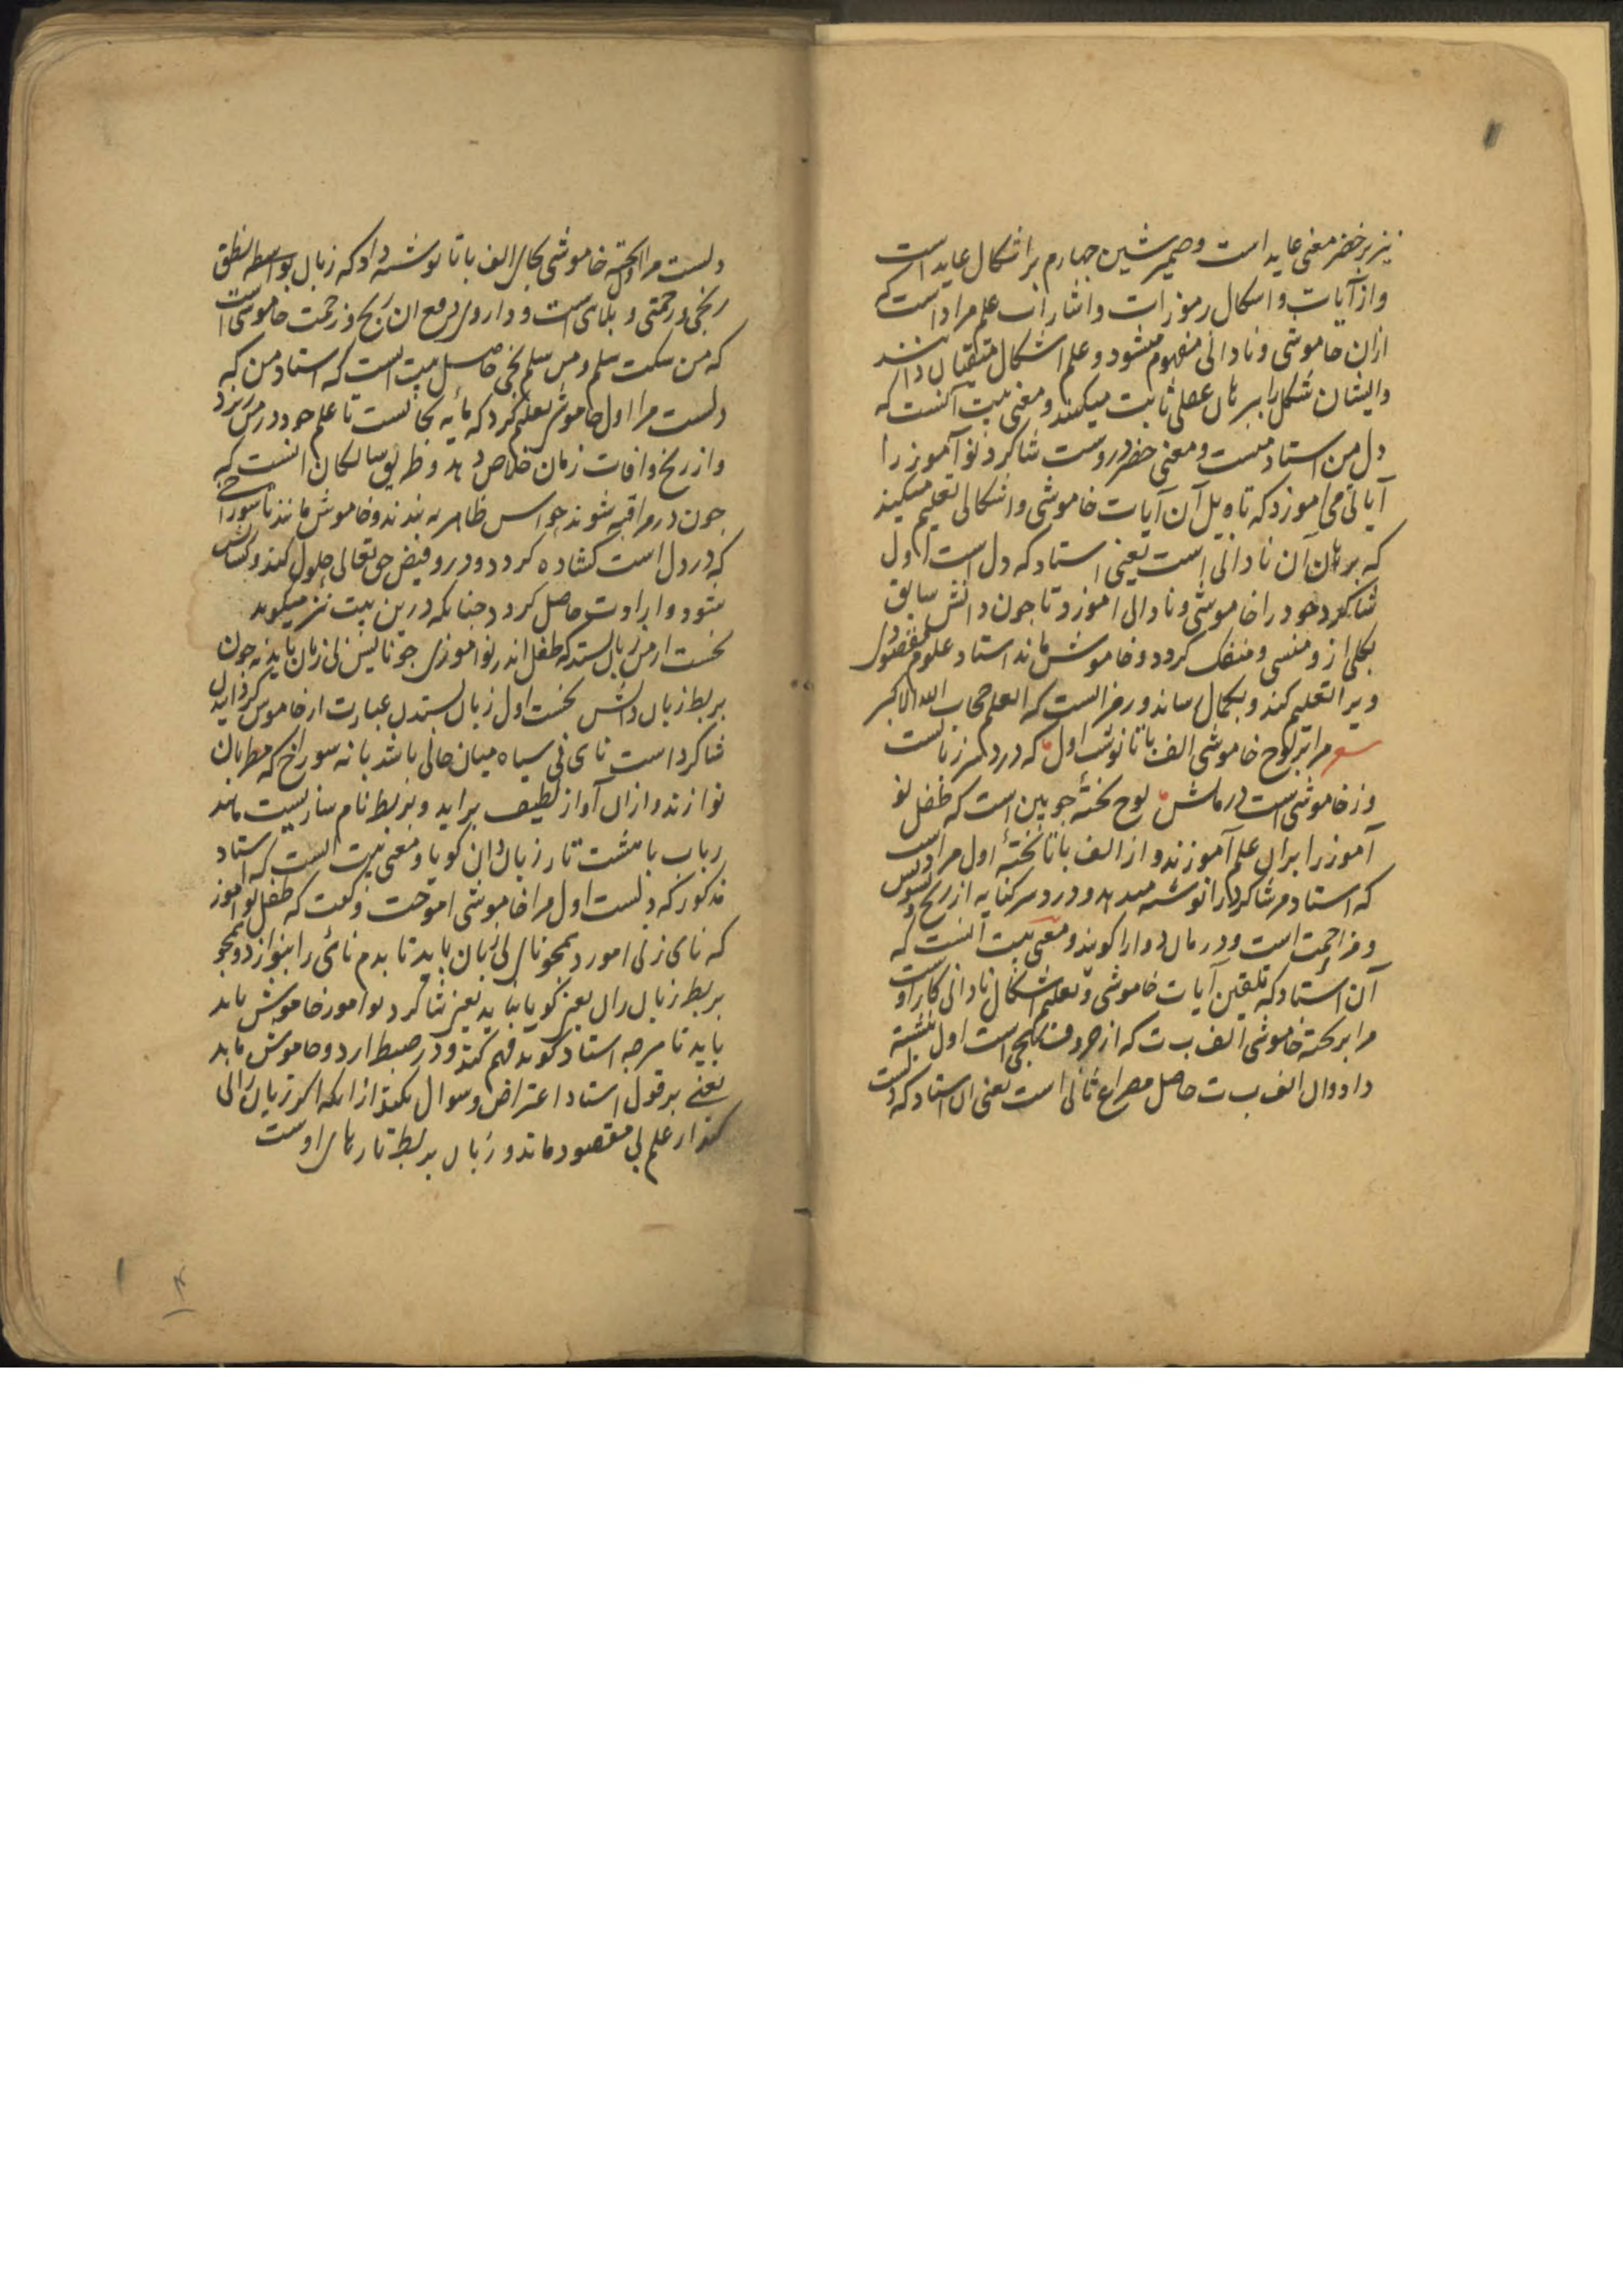 نیز بر خضر معنی عاید است و ضمیر شین چهارم بر اشکال عاید است
و از آیات و اشکال رموزات و اشارات علم مراد است که
ازان خاموشی و نادانی مفهوم میشود و علم اشکال متقیان دانند
و ایشان شکل را ببرهان عقلی ثابت میکنند و معنی بیت آنست که
دل من استاد منست و معنی خضر دروست شاکرد نوآموز را
آیاتی می آموزد که تاویل آن آیات خاموشی و اشکالی تعلیم میکند
که برهان آن نادانی است یعنی استاد که دل است اول
شاکرد خود را خاموشی و نادانی آموزد تا چون دانش سابق
بکلی ازو منسی و منفک کردد و خاموش ماند استاد علوم مقصود
ویرا تعلیم کند و بکمال رساند و رمز است که العلم حجاب الله الاکبر
مرا بر لوح خاموشی الف با تا نوشت اول که درد سر زبانست
وز خاموشی است درمانش لوح تختهٔ چوبین است که طفل نو
آموز را بران علم آموزند و از الف با تا تختهٔ اول مراد است
که استاد مر شاکرد را نوشته میدهد و درد سر کنایه از رنج و
و مزاحمت است و درمان دوا را کویند و معنی بیت آنست که
آن استاد که تلقین آیات خاموشی و تعلیم اشکال نادانی کار اوست
مرا بر تختهٔ خاموشی الف ب ت که از حروف تهجی است اول نبشته
داد و ال الف ب ت حاصل مصراع ثانی است یعنی ان استاد که دلست
دلست مرا اول تختهٔ خاموشی بجای الف با تا نوشته داد که زبان بواسطه نطق
رنجی و زحمتی و بلای است و داروی دفع ان رنج و زحمت خاموشی است
که من سکت سلم و من سلم نجی حاصل بیت است که استاد من که
دلست مرا اول خاموشی تعلیم کرد که مایه نجاتست تا علم خود در من ریزد
و از رنج و افات زمان خلاص دهد و طریق سالکان انست که
چون در مراقبه شوند حواس ظاهر به بندند و خاموش مانند تا سوراخی
که در دل است کشاده کردد و درو فیض حق تعالی حلول کند و کشایش
شود و ابرا و ت حاصل کردد چنانکه درین بیت نیز میکوید
نخست از من زبان بستد که طفل اندر نوآموزی چو نایش بی زبان باید نه چون
بربط زبان دانش نخست اول زبان ستدن عبارت از خاموش کردانیدن
شاکرد است نای نی سیاه میان خالی باشد با نه سوراخ که مطربان
نوازند و ازان آواز لطیف براید و بربط نام سازیست مانند
رباب با هشت تار زبان دان کویا و معنی بیت انست که استاد
مذکور که دلست اول مرا خاموشی اموخت و کفت که طفل نو اموز
که نای زنی اموزد همچو نای بی زبان باید تا بدم نائی را بنوازد و همچو
بربط زبان دان یعنی کویا نباید یعنی شاکرد نو اموز خاموش باید
باید تا هرچه استاد کوید فهم کند و در ضبط ارد و خاموش ماند
یعنی بر قول استاد اعتراض و سوال نکند ازانکه اکر زبان دانی
کند از علم بی مقصود ماند و زبان بربط تارهای اوست
۴